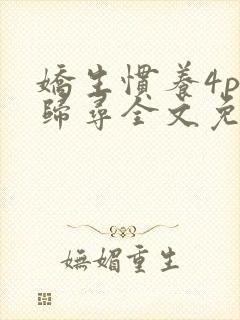 嬌生慣養4p
歸尋全文免
嫵媚重生